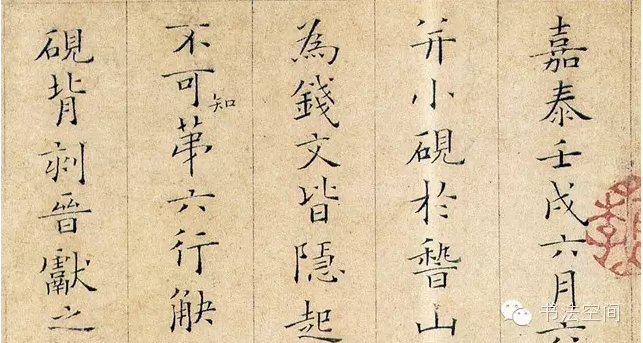 嘉泰壬戌六月六
并小硯於稽山
為錢文皆隱起
不可知第六行缺
硯背刻晉獻之
书法空间